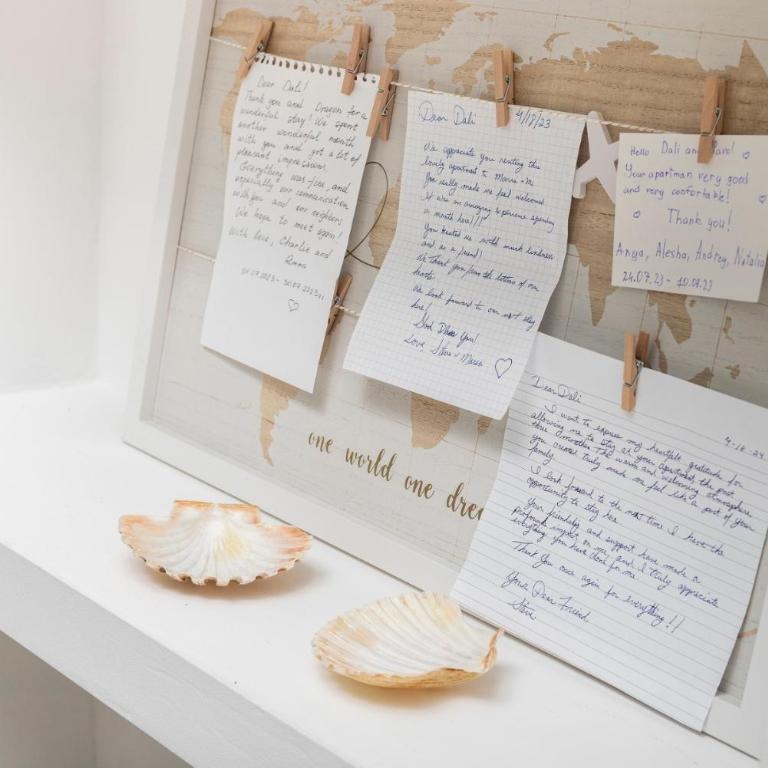 Dear Dali!
Thank you and Dragon for a
wonderful stay! We spent
another wonderful month
with you and got a lot of
pleasant impressions.
Everything was fine, and
especially our communication
with you and our neighbors.
We hope to meet again!
With love, Charlie and
01.07.2023 - 30.07.2023
Dear Dali
4/18/23
We appreciate you renting this
lovely apartment to
You really made us feel welcomed
It was an amazing experience spending
a month here!!!
You treated us with much kindness
and as a friend!
We thank you from the bottom of our
hearts.
We look forward to our next stay
here!
God Bless You!
Love, Steve +
Hello Dali and
Your apartman very good
and very confortable!
Thank you!
Anya, Alesha, Andrey, Natalia
24.07.23 - 10.08.23
one world one
Dear Dali
4-18-24
I want to express my heartfelt gratitude for
allowing me to stay at your apartment the past
The warm and welcoming atmosphere
you created truly made me feel like a part of your
family.
I look forward to the next time I have the
opportunity to stay here.
Your friendship and support have made a
profound impact on me, and I truly appreciate
everything you have done for me.
Thank You once again for everything!!
Your Dear Friend,
Steve